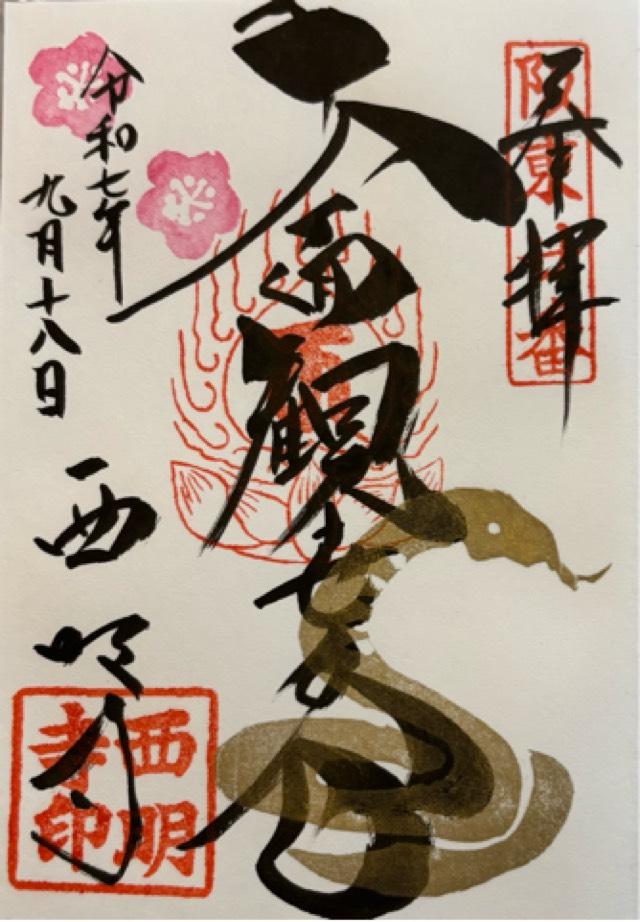 奉拝
阪東
番
面観世音
令和七年
九月十八日
西明寺
西明
寺印